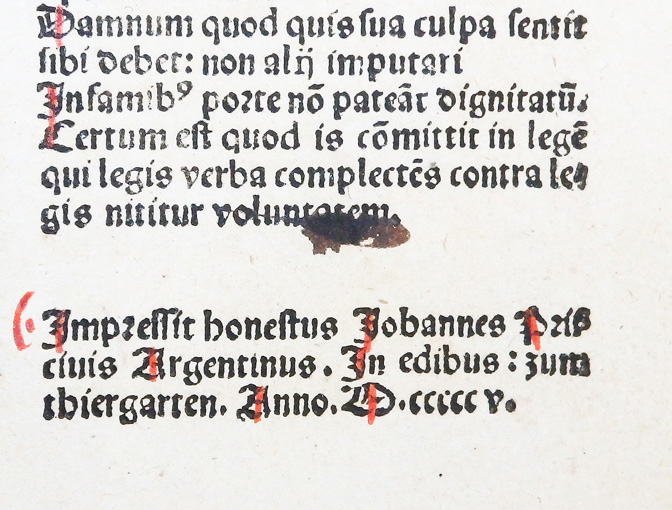 Damnum quod quis sua culpa sentit
sibi debet: non alij imputari
Infamibꝰ porte nō pateāt dignitatū.
Certum est quod is cōmittit in legē
qui legis verba complectēs contra le⸗
gis nititur voluntatem.
Impressit honestus Johannes Pris
ciuis Argentinus. In edibus: zum
thiergarten. Anno. M.ccccc v.